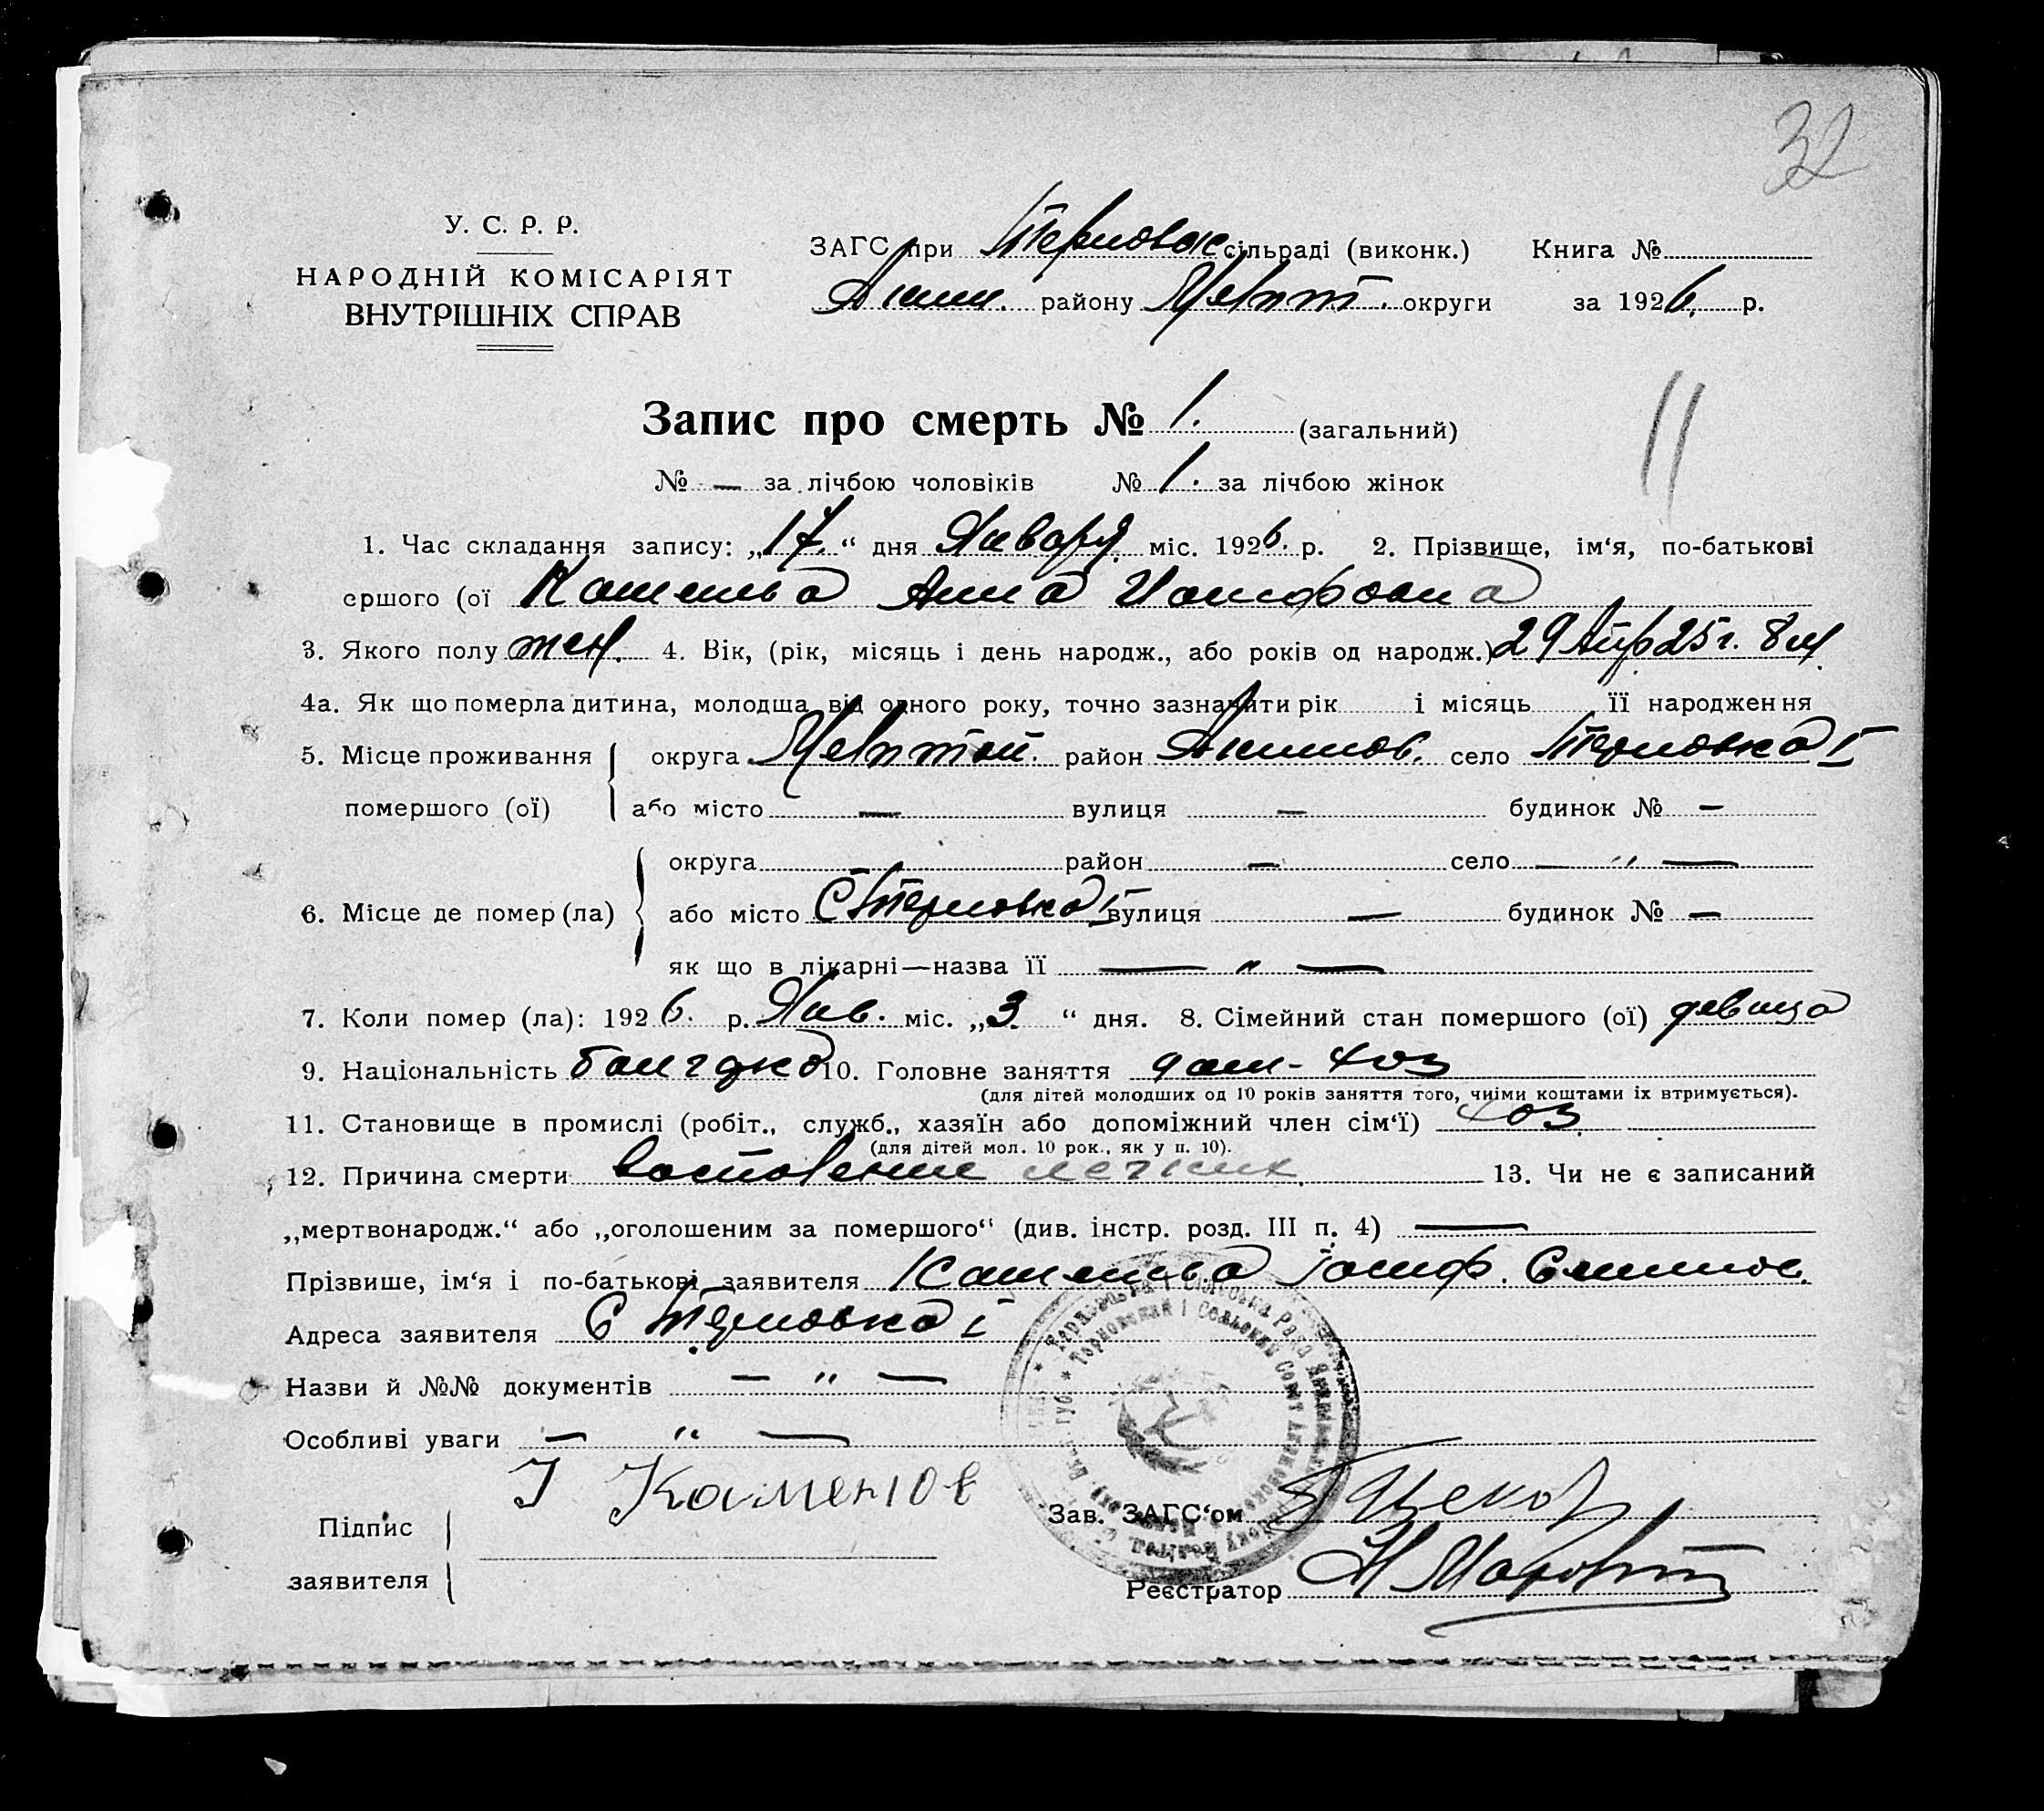 32
У. С. Р. Р.
НАРОДНІЙ КОМІСАРІЯТ
ВНУТРІШНІХ СПРАВ
ЗАГС при Терновск сільраді (виконк.) Книга №
Аким. району Мелит. округи за 1926. р.
Запис про смерть № 1. (загальний)
11
№ — за лічбою чоловіків № 1. за лічбою жінок
1. Час складання запису: „17.“ дня Января міс. 1926. р. 2. Прізвище, ім‘я, по-батькові
ершого (ої Анна Иосифовна
3. Якого полу жен. 4. Вік, (рік, місяць і день народж., або років од народж.) 29 Апр 25 г. 8 м
4а. Як що померла дитина, молодша від одного року, точно зазначити рік і місяць її народження
5. Місце проживання округа район Акимов. село Терновка I
помершого (ої) або місто — вулиця — будинок № —
округа район — село — „ —
6. Місце де помер (ла) або місто С Терновка I вулиця — будинок № —
як що в лікарні—назва її — „ —
7. Коли помер (ла): 1926. р. Янв. міс. „3“ дня. 8. Сімейний стан помершого (ої) девица
9. Національність болгарка 10. Головне заняття хоз
(для дітей молодших од 10 років заняття того, чиїми коштами їх втримується).
11. Становище в промислі (робіт., служб., хазяїн або допоміжний член сім‘ї) хоз
(для дітей мол. 10 рок., як у п. 10).
12. Причина смерти легких. 13. Чи не є записаний
„мертвонародж.“ або „оголошеним за помершого“ (див. інстр. розд. III п. 4) —
Прізвише, ім‘я і по-батькові заявителя Іосиф.
Адреса заявителя С Терновка I
Назви й №№ документів — „ —
Особливі уваги — „ —
І Каменов
Підпис
заявителя
Зав. ЗАГС‘ом
Реєстратор